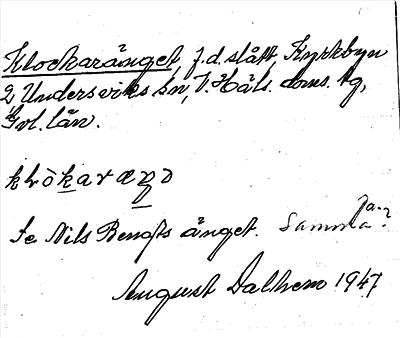 Klockaränget, f.d. slått, Kyrkbyn
2, Undersviks sn, V. Häls. doms. tg,
Gvl. län.
klòkaræŋə
Se Nils Bengts änget. Samma? Ja.
August Dalhem 1947